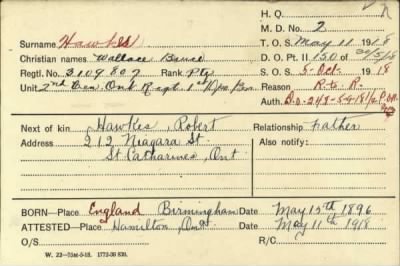 H. Q.
M. D. No. 2
Surname Hawkes T. O. S. May 11 1918
Christian names Wallace Bruce D. O. Pt. II 150 of 30/5/18
Regtl. No. 3109807 Rank Pte S. O. S. 5-Oct. 1918
Unit 2nd Cen. Ont Regt 1st Dpo. Bn. Reason R. to R.
Auth. D.O. 248-
Next of kin Hawkes, Robert Relationship Father
Address 212 Niagara St. Also notify:
St Catharines, Ont
BORN—Place England Birmingham Date May 15th 1896
ATTESTED—Place Hamilton, Ont Date May 11th 1918
O/S R/C
W. 22—75M-5-18. 1772-39 839.